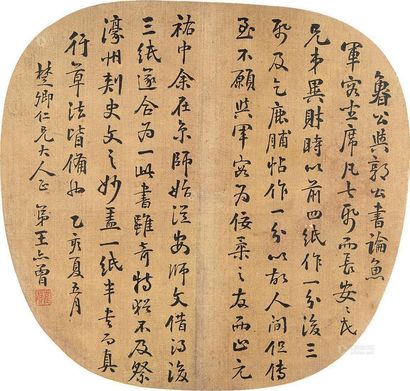 魯公與郭公書論魚
軍容坐席凡七紙而長安々氏
兄弟異財時以前四紙作一分後三
紙及乞鹿脯帖作一分以故人間但傳
至不願與軍容為佞柔之友而止元
祐中余在京師始從安師文借得後
三紙遂合為一此書雖奇特猶不及祭
濠州刺史文之妙蓋一紙半書而真
行草法皆備也 乙亥夏五月
楚卿仁兄大人正 弟王亦曾